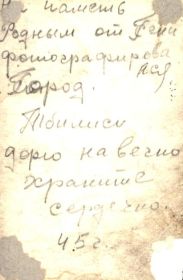 На память
Родным от Гени
фотографирова
лся.
Город.
Тбилиси
дарю на вечно
храните
сердечно.
45 г.